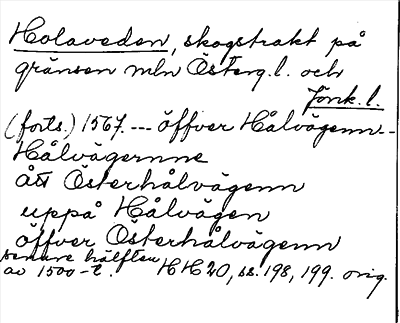 Holaveden, skogstrakt på
gränsen mln Österg.l. och
Jönk.l.
(forts.) 1567. --- öffver Hålvägenn -
Hålvägernne
ått Österhålvägenn
uppå Hålvägen
öffver Österhålvägenn
senare hälften
av 1500-t. HH 20, ss. 198, 199. orig.